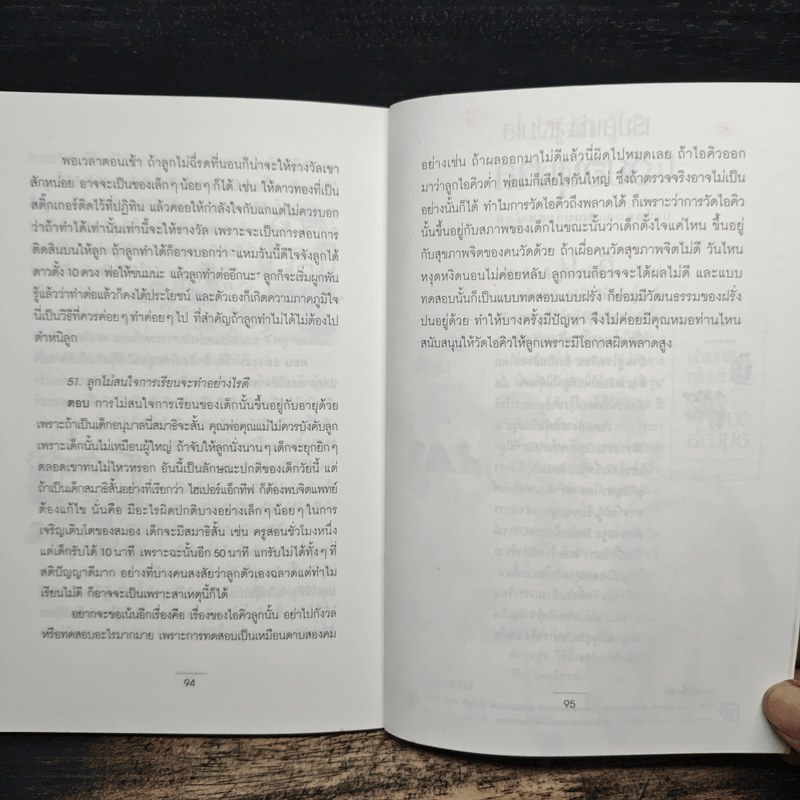 พอเวลาตอนเช้า ถ้าลูกไม่ฉี่รดที่นอนก็น่าจะให้รางวัลเขา
สักหน่อย อาจจะเป็นของเล็กๆ น้อยๆ ก็ได้ เช่น ให้ดาวทองที่เป็น
สติ๊กเกอร์ติดไว้ที่ปฏิทิน แล้วคอยให้กำลังใจกับแกแต่ไม่ควรบอก
ว่าถ้าทำได้เท่านั้นเท่านี้จะให้รางวัล เพราะจะเป็นการสอนการ
ติดสินบนให้ลูก ถ้าลูกทำได้ก็อาจบอกว่า "แหมวันนี้ดีใจจังลูกได้
ดาวตั้ง 10 ดวง พ่อให้ขนมนะ แล้วลูกทำต่ออีกนะ" ลูกก็จะเริ่มผูกพัน
รู้แล้วว่าทำต่อแล้วก็คงได้ประโยชน์ และตัวเองก็เกิดความภาคภูมิใจ
นี่เป็นวิธีที่ควรค่อยๆ ทำค่อยๆ ไป ที่สำคัญถ้าลูกทำไม่ได้ไม่ต้องไป
ตำหนิลูก
51. ลูกไม่สนใจการเรียนจะทำอย่างไรดี
ตอบ การไม่สนใจการเรียนของเด็กนั้นขึ้นอยู่กับอายุด้วย
เพราะถ้าเป็นเด็กอนุบาลนี่สมาธิจะสั้น คุณพ่อคุณแม่ไม่ควรบังคับลูก
เพราะเด็กนั้นไม่เหมือนผู้ใหญ่ ถ้าจับให้ลูกนั่งนานๆ เด็กจะยุกยิกๆ
ตลอดเขาทนไม่ไหวหรอก อันนี้เป็นลักษณะปกติของเด็กวัยนี้ แต่
ถ้าเป็นเด็กสมาธิสั้นอย่างที่เรียกว่า ไฮเปอร์แอ็กทีฟ ก็ต้องพบจิตแพทย์
ต้องแก้ไข นั่นคือ มีอะไรผิดปกติบางอย่างเล็กๆ น้อยๆ ในการ
เจริญเติบโตของสมอง เด็กจะมีสมาธิสั้น เช่น ครูสอนชั่วโมงหนึ่ง
แต่เด็กรับได้ 10 นาที เพราะฉะนั้นอีก 50 นาที แกรับไม่ได้ทั้งๆ ที่
สติปัญญาดีมาก อย่างที่บางคนสงสัยว่าลูกตัวเองฉลาดแต่ทำไม
เรียนไม่ดี ก็อาจจะเป็นเพราะสาเหตุนี้ก็ได้
อยากจะขอเน้นอีกเรื่องคือ เรื่องของไอคิวลูกนั้น อย่าไปกังวล
หรือทดสอบอะไรมากมาย เพราะการทดสอบเป็นเหมือนดาบสองคม
94
อย่างเช่น ถ้าผลออกมาไม่ดีแล้วนี่ผิดไปหมดเลย ถ้าไอคิวออก
มาว่าลูกไอคิวต่ำ พ่อแม่ก็เสียใจกันใหญ่ ซึ่งถ้าตรวจจริงอาจไม่เป็น
อย่างนั้นก็ได้ ทำไมการวัดไอคิวถึงพลาดได้ ก็เพราะว่าการวัดไอคิว
นั้นขึ้นอยู่กับสภาพของเด็กในขณะนั้นว่าเด็กตั้งใจแค่ไหน ขึ้นอยู่
กับสุขภาพจิตของคนวัดด้วย ถ้าเผื่อคนวัดสุขภาพจิตไม่ดี วันไหน
หงุดหงิดนอนไม่ค่อยหลับ ลูกกวนก็อาจจะได้ผลไม่ดี และแบบ
ทดสอบนั้นก็เป็นแบบทดสอบแบบฝรั่ง ก็ย่อมมีวัฒนธรรมของฝรั่ง
ปนอยู่ด้วย ทำให้บางครั้งมีปัญหา จึงไม่ค่อยมีคุณหมอท่านไหน
สนับสนุนให้วัดไอคิวให้ลูกเพราะมีโอกาสผิดพลาดสูง
95